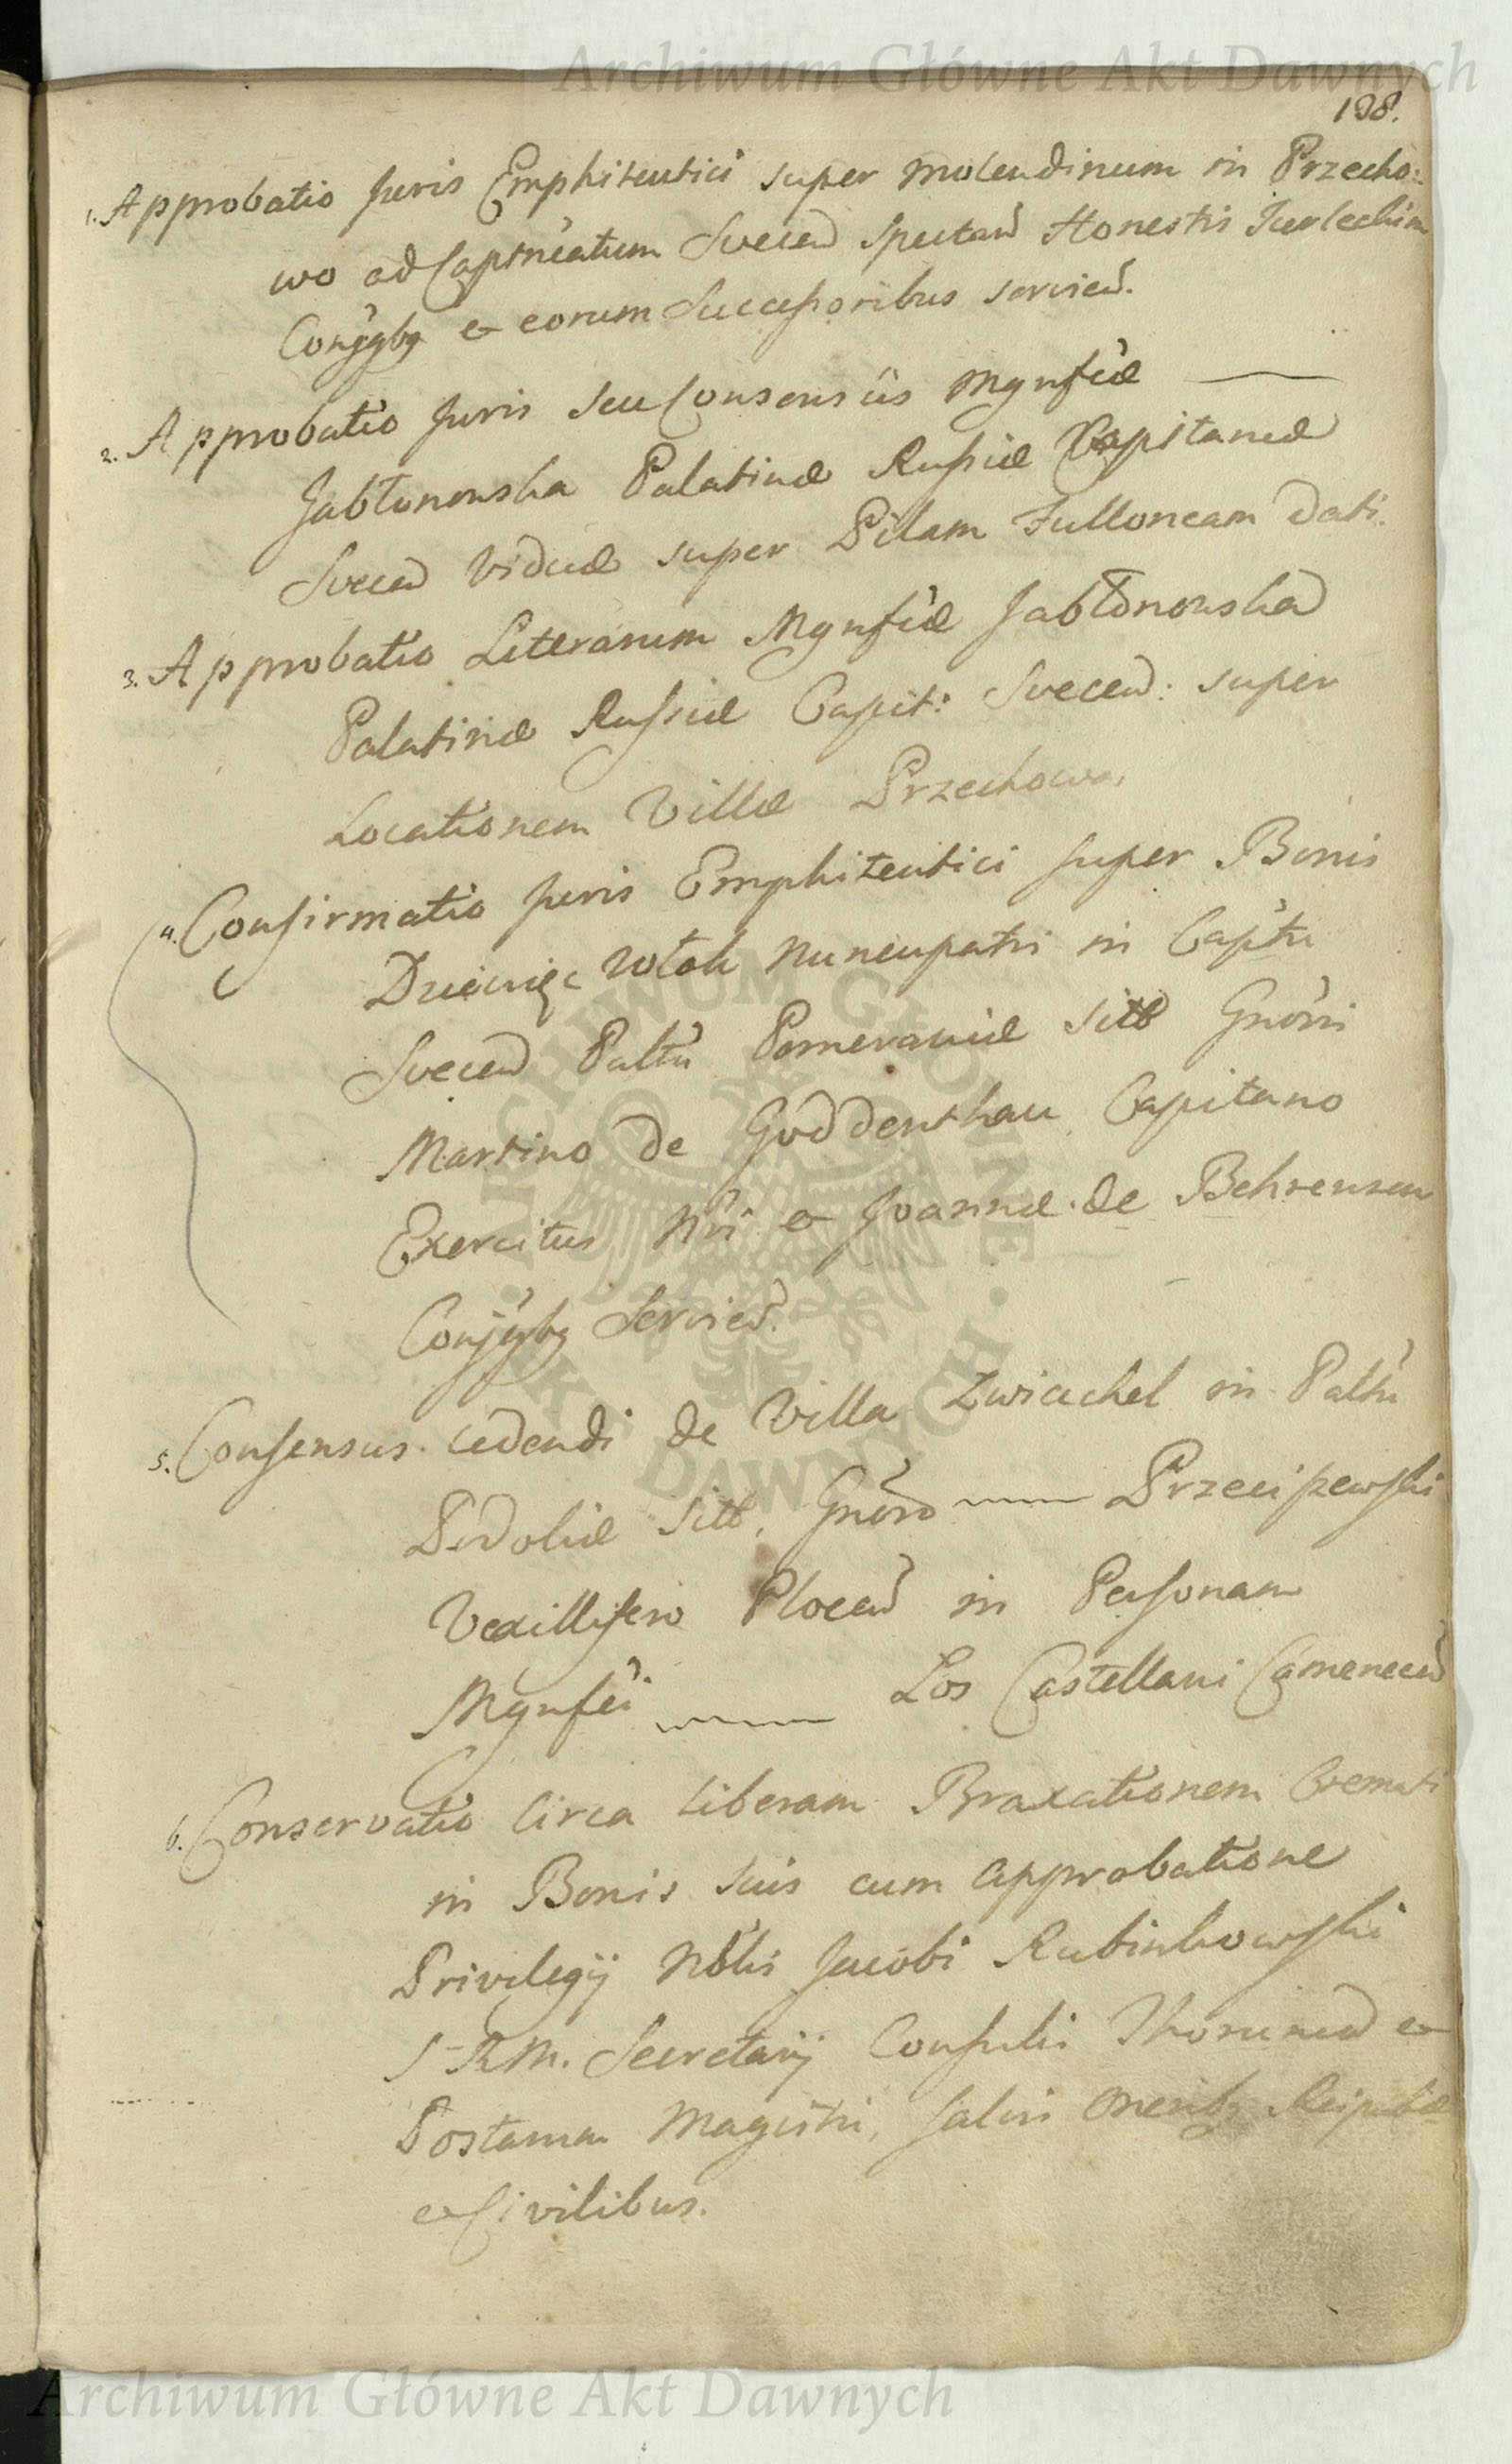 Archiwum Główne Akt Dawnych
108.
1. Approbatio Juris Emphiteutici super molendinum in Przecho:
wo ad Captneatum Svecen̄ Spectan̄ Honestis
Conjgbg et eorum Successoribus servien̄.
2. Approbatio Juris seu Consensûs Mgnfcæ ——
Jabłonowska Palatinæ Russiæ Capitaneæ
Svecen̄ Viduæ super Pilam Fulloneam Dati.
3. Approbatio Literarum Mgnfcæ Jabłonowska
Palatinæ Russiæ Capit: Svecen̄: super
Locationem Villæ Przechowo.
4. Confirmatio Juris Emphiteutici super Bonis
Dziewięc Włok nuncupatis in Capttu
Svecen̄ Palttu Pomeraniæ sitt Gnōsi
Martino de Goddenthau Capitano
Exercitus Nri et Joannæ de Behrensen
Conjgbg Servien̄.
5. Consensus cedendi de Villa Zwiachel in Palttu
Podoliæ sitt, Gnōso —— Przeciszewski
Vexillifero Plocen̄ in Personam
Mgnfci —— Łos Castellani Camenecen̄
6. Conservatio circa liberam Braxationem Cremati
in Bonis suis cum approbatione
Privilegij Nblis Jacobi Rubinkowski
S. R. M. Secretarij Consulis Thorunien̄ et
Postarum Magistri, salvis oneribg Reipubcæ
et Civilibus.
ARCHIWUM GŁÓWNE AKT DAWNYCH
Archiwum Główne Akt Dawnych